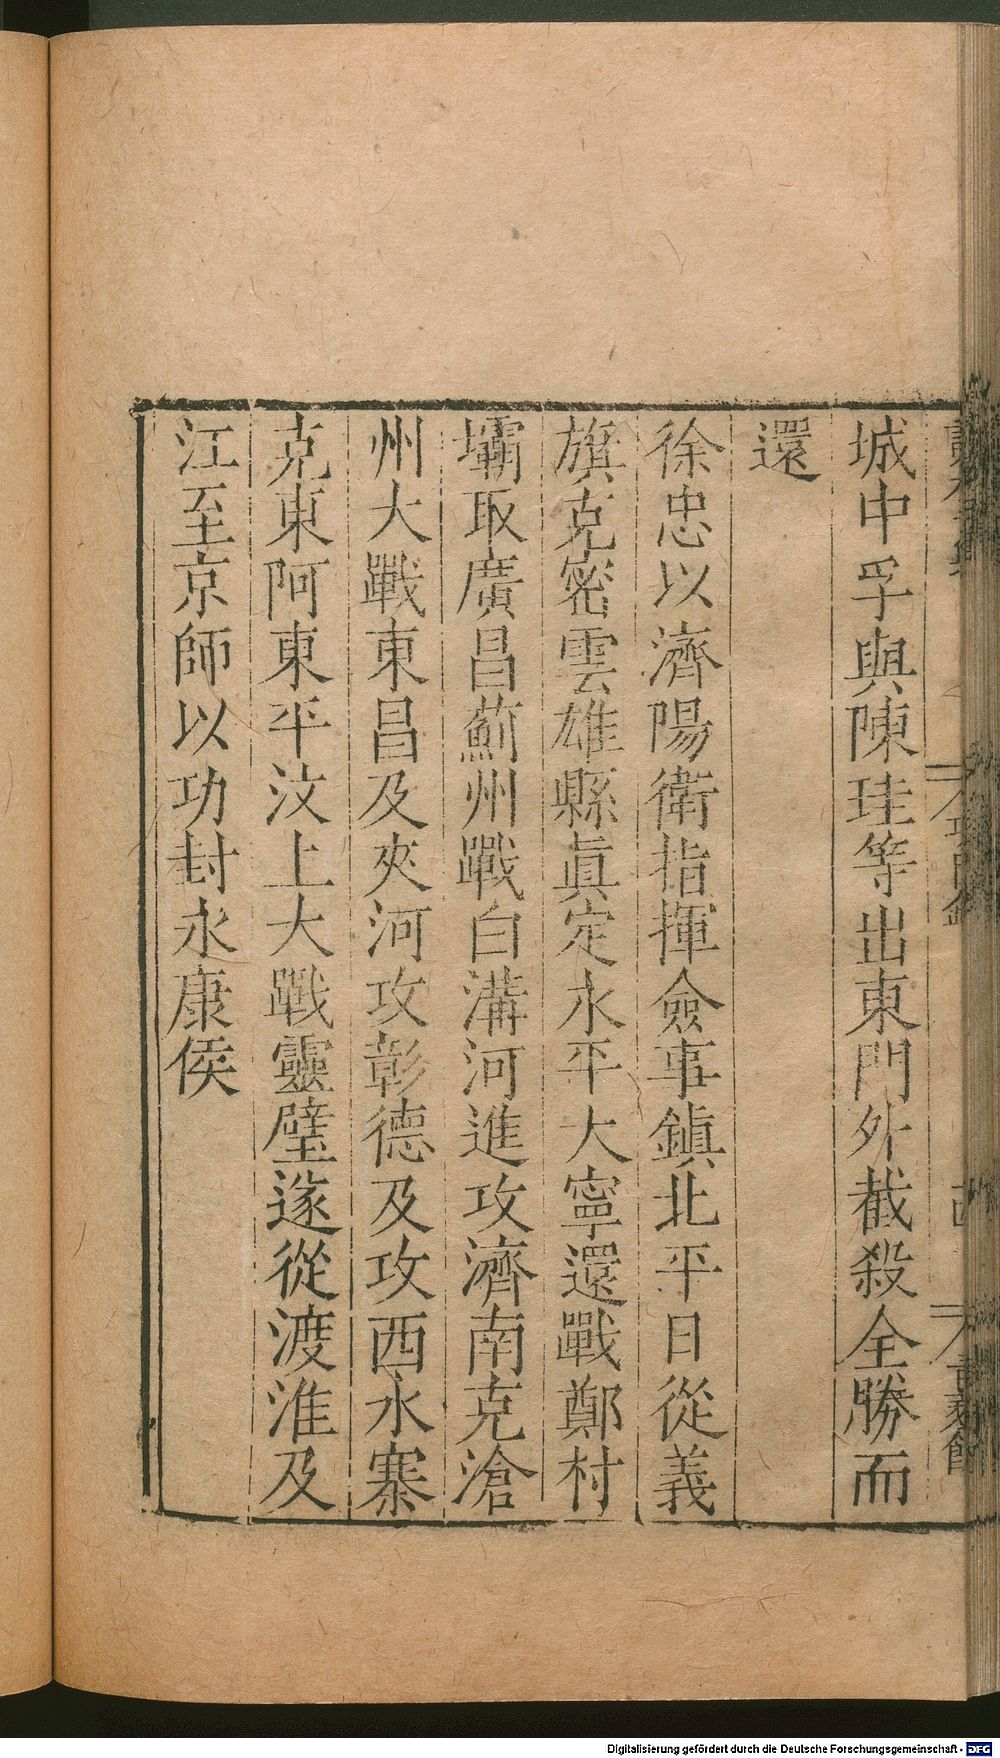 城中孚與陳珪等出東門外截殺全勝而
還
徐忠以濟陽衛指揮僉事鎮北平日從義
旗克密雲雄縣眞定永平大寧還戰鄭村
壩取廣昌薊州戰白溝河進攻濟南克滄
州大戰東昌及夾河攻彰德及攻西水寨
克東阿東平汶上大戰靈璧遂從渡淮及
江至京師以功封永康侯
Digitalisierung gefördert durch die Deutsche Forschungsgemeinschaft - DFG